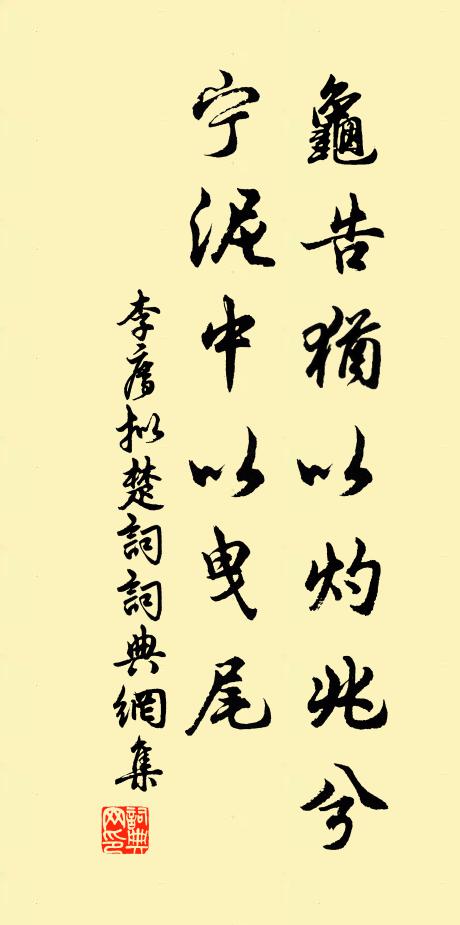 龜告猶以灼兆兮
宁泥中以曳尾
李廌拟楚詞詞典網集
詞典
网印